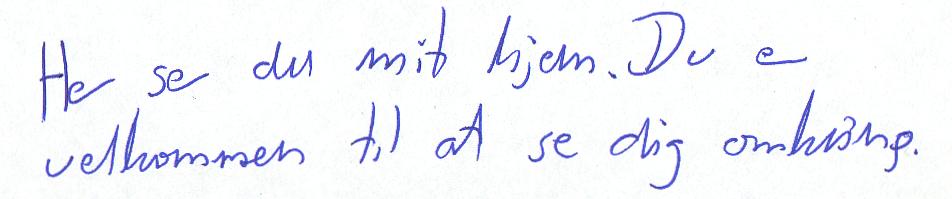 Her ser du mit hjem. Du er
velkommen til at se dig omkring.